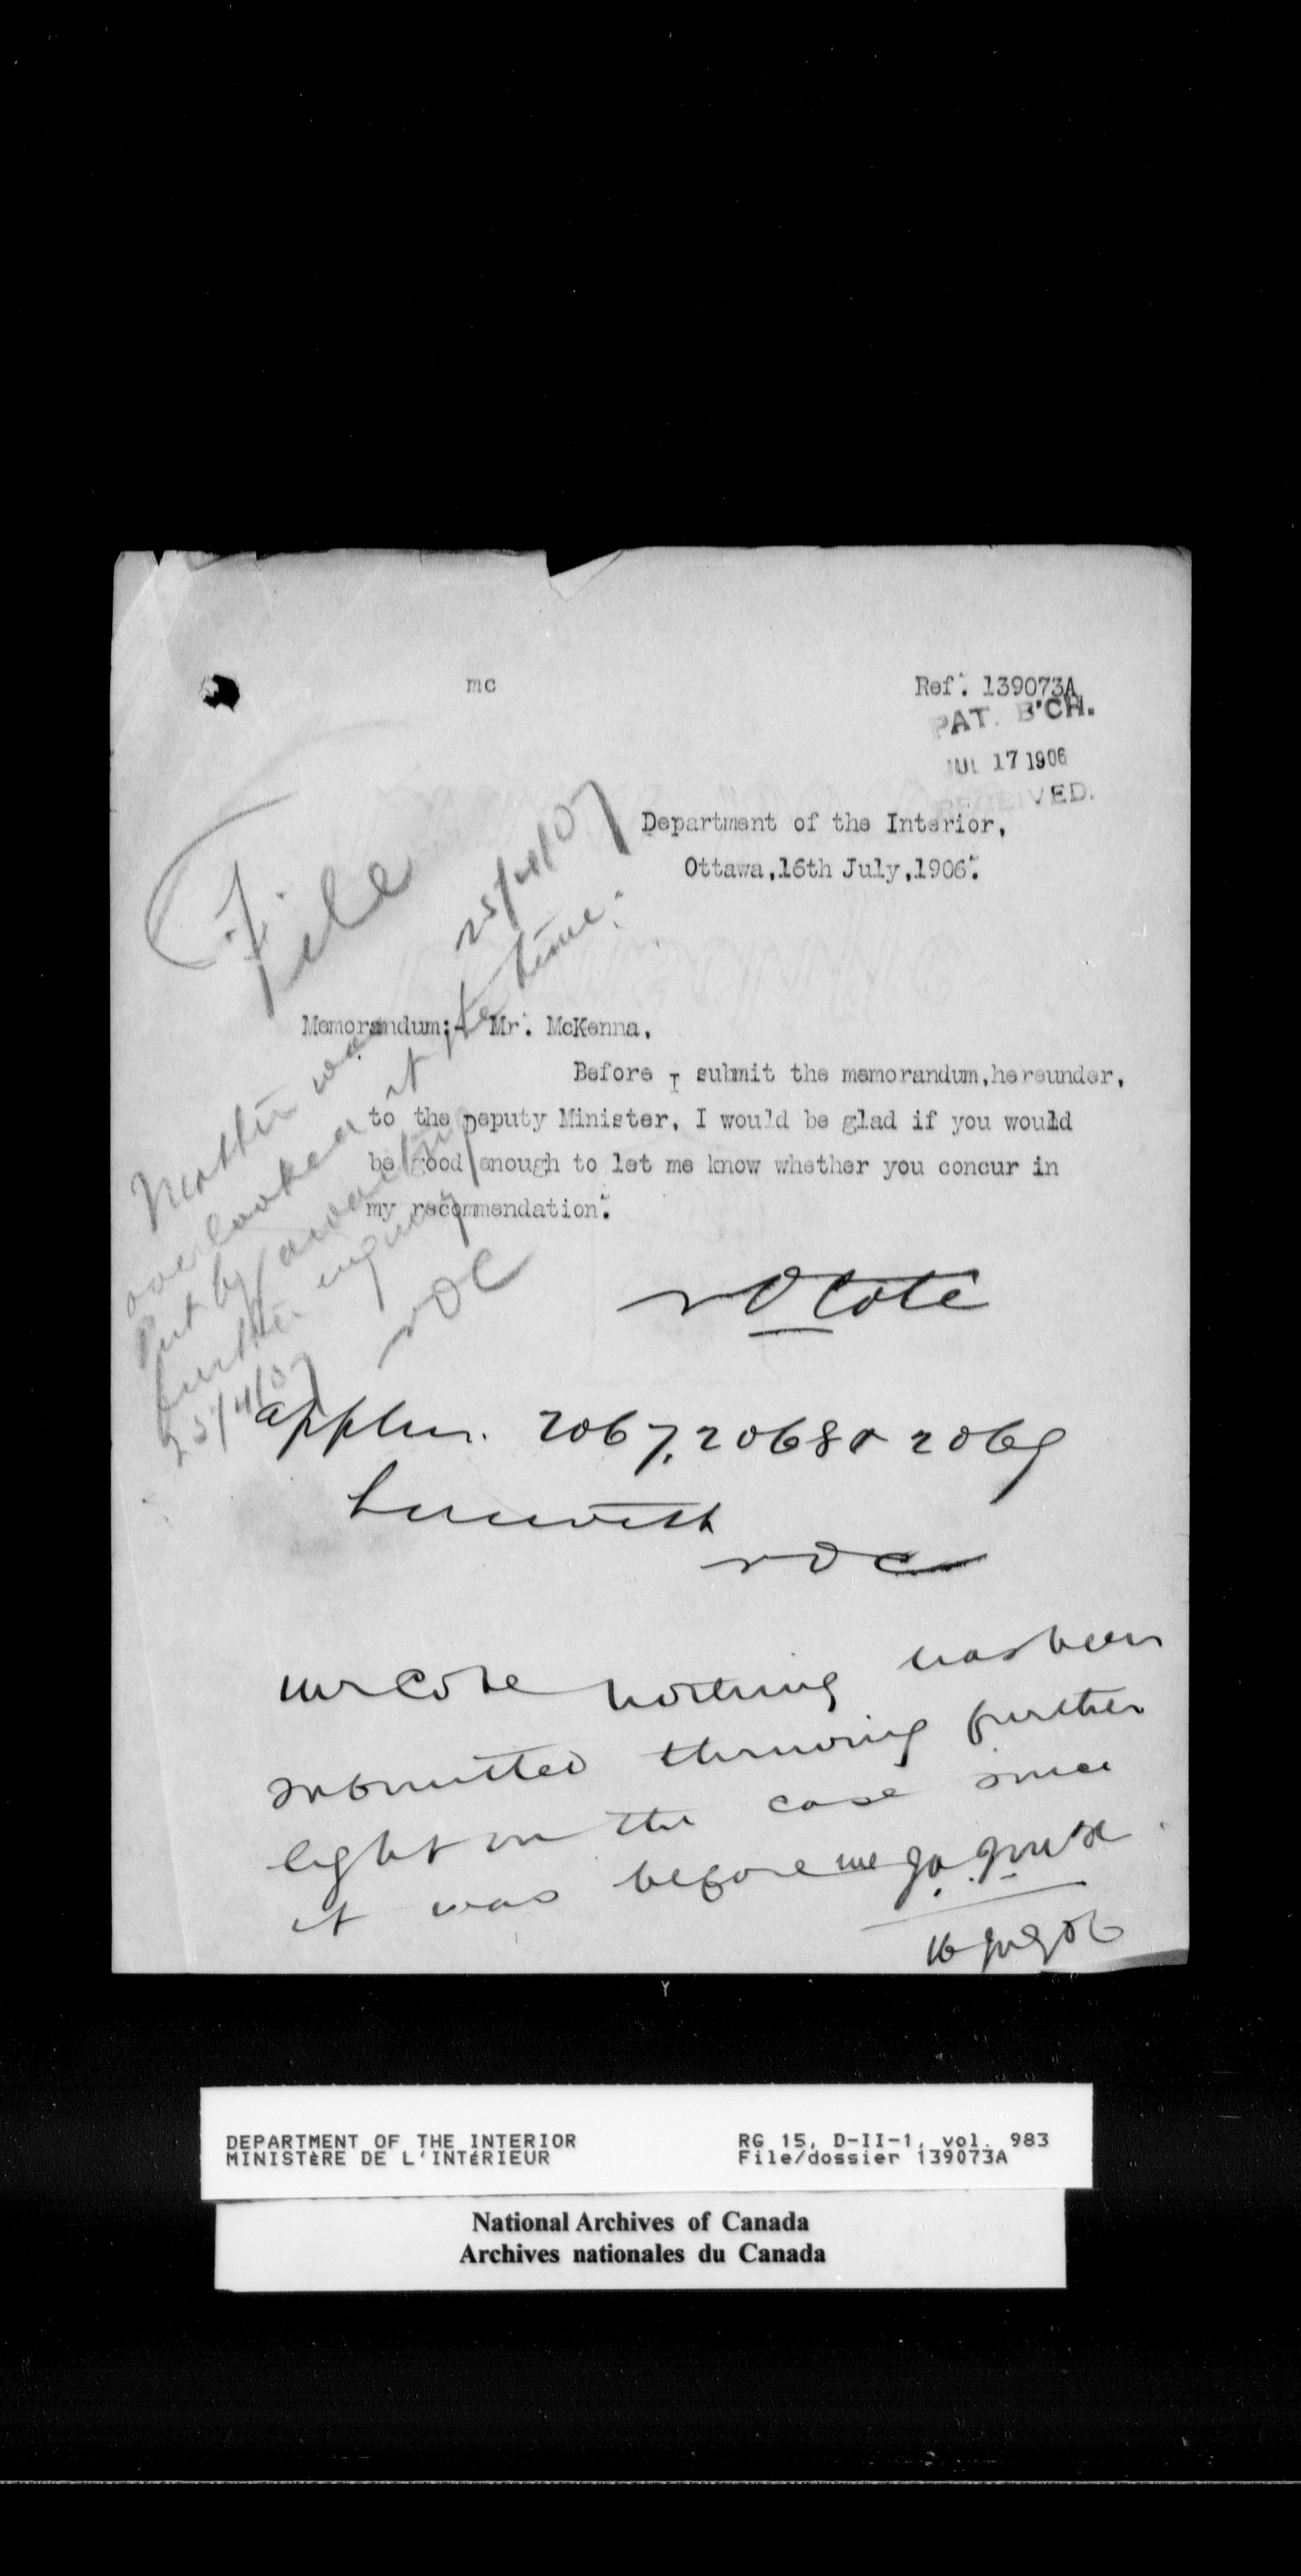 mc
Ref. 139073A
PAT. B'CH.
JUL 17 1906
RECEIVED.
Department of the Interior,
Ottawa, 16th July, 1906.
File
25/4/07
Memorandum:- Mr. McKenna.
Before I submit the memorandum, hereunder,
to the Deputy Minister, I would be glad if you would
be good enough to let me know whether you concur in
my recommendation.
Matter was
overlooked at the time.
Put by awaiting
further enquiry
25/4/07
NOC
NO Coté
applns. 2067, 2068 & 2069
herewith
NOC
Mr Cote nothing has been
submitted throwing further
light on the case since
it was before me
16 July 06
DEPARTMENT OF THE INTERIOR
MINISTÈRE DE L'INTÉRIEUR
RG 15, D-II-1, vol. 983
File/dossier 139073A
National Archives of Canada
Archives nationales du Canada